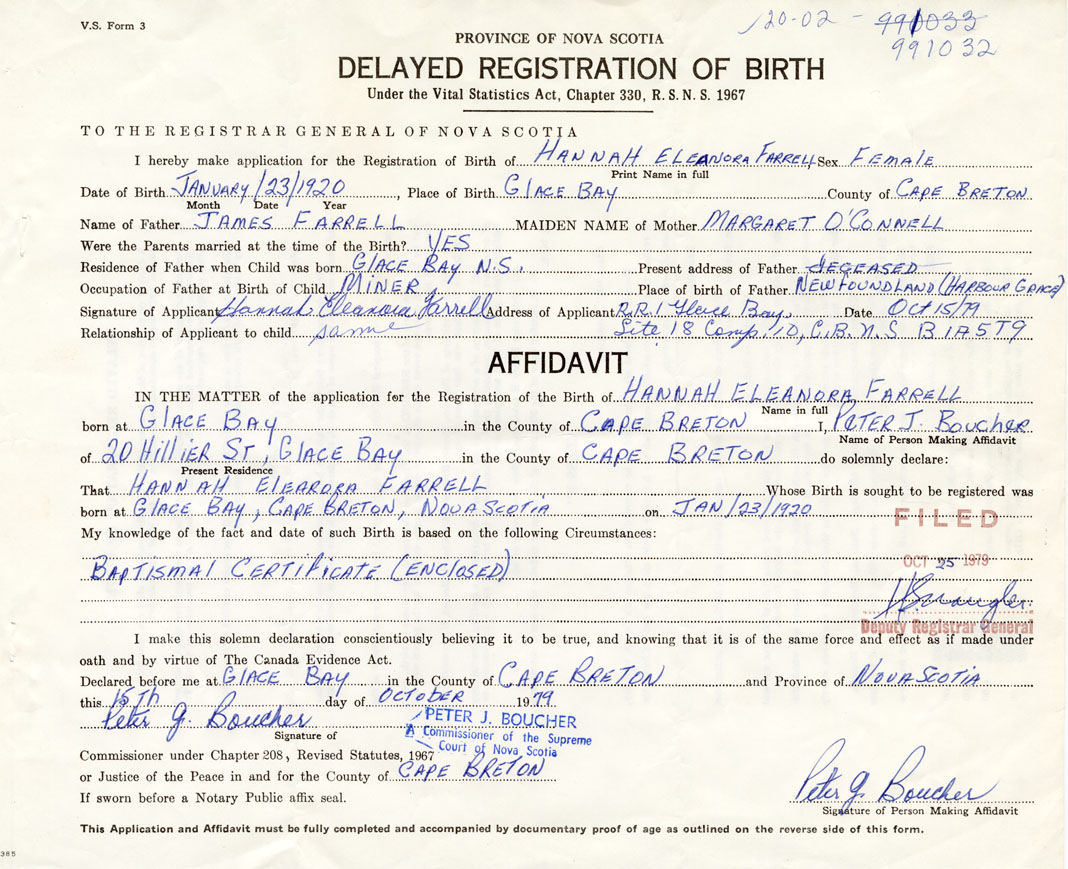 V.S. Form 3
120-02 - 991033
991032
PROVINCE OF NOVA SCOTIA
DELAYED REGISTRATION OF BIRTH
Under the Vital Statistics Act, Chapter 330, R. S. N. S. 1967
TO THE REGISTRAR GENERAL OF NOVA SCOTIA
I hereby make application for the Registration of Birth of HANNAH ELEANORA FARRELL Sex FEMALE
Print Name in full
Date of Birth JANUARY/23/1920, Place of Birth GLACE BAY County of CAPE BRETON
Month Date Year
Name of Father JAMES FARRELL MAIDEN NAME of Mother MARGARET O'CONNELL
Were the Parents married at the time of the Birth? YES
Residence of Father when Child was born GLACE BAY N.S. Present address of Father DECEASED
Occupation of Father at Birth of Child MINER Place of birth of Father NEWFOUNDLAND (HARBOUR GRACE)
Signature of Applicant Hannah Eleanora Farrell Address of Applicant R.R.1 Glace Bay, Date Oct 15/79
Relationship of Applicant to child same Site 18 Comp. 10, C.B. N.S B1A5T9
AFFIDAVIT
IN THE MATTER of the application for the Registration of the Birth of HANNAH ELEANORA FARRELL
Name in full
born at GLACE BAY in the County of CAPE BRETON I, PETER J. BOUCHER
Name of Person Making Affidavit
of 20 HILLIER ST, GLACE BAY in the County of CAPE BRETON do solemnly declare:
Present Residence
That HANNAH ELEARORA FARRELL Whose Birth is sought to be registered was
born at GLACE BAY, CAPE BRETON, NOVA SCOTIA on JAN/23/1920
FILED
My knowledge of the fact and date of such Birth is based on the following Circumstances:
OCT 25 1979
BAPTISMAL CERTIFICATE (ENCLOSED)
Deputy Registrar General
I make this solemn declaration conscientiously believing it to be true, and knowing that it is of the same force and effect as if made under
oath and by virtue of The Canada Evidence Act.
Declared before me at GLACE BAY in the County of CAPE BRETON and Province of NOVA SCOTIA
this 15th day of OCTOBER 1979
Peter J. Boucher
Signature of
PETER J. BOUCHER
A Commissioner of the Supreme
Court of Nova Scotia
Commissioner under Chapter 208, Revised Statutes, 1967
or Justice of the Peace in and for the County of CAPE BRETON
If sworn before a Notary Public affix seal.
Peter J. Boucher
Signature of Person Making Affidavit
This Application and Affidavit must be fully completed and accompanied by documentary proof of age as outlined on the reverse side of this form.
385